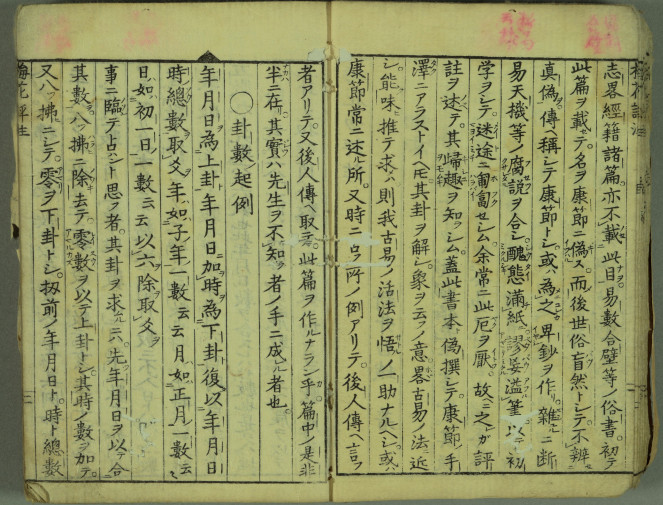 志畧經籍諸篇亦不載此目易數合壁等ノ俗書初テ
此篇ヲ載テ名ヲ康節ニ偽ス而後世俗盲然トシテ不辨
真偽傳ヘ稱シテ康節トシ或ハ為之卑鈔ヲ作リ雜ニ断
易天機等ノ腐説ヲ合シ醜態滿紙謬妄溢筆以テ初
学ヲシテ迷途ニ匍匐セシム余常ニ此厄ヲ厭故ニ之ガ評
註ヲ述テ其帰趣ヲ知ラシム蓋此書本偽撰シテ康節ノ手
澤ニアラストイヘ𪜈其卦ヲ解シ象ヲ云ノ意畧古易ノ法ニ近
シ能味ヒ推テ求ハ則我古易ノ活法ヲ悟ルノ一助ナルヘシ或ハ
康節常ニ述ル所又時ニ占ノ例アリテ後人傳ヘ言フ
者アリテ又後人傳ヘ取テ此篇ヲ作ルナラン乎篇中ノ是非
半ニ在其實ハ先生ヲ不知者ノ手ニ成ル者也
○卦數起例
年月日為上卦年月日加時為下卦復以年月日
時總數取爻年如子年一數云云月如正月一數云云
日如初一日一數云云以六除取爻ヲ
事ニ臨テ占ハント思フ者其卦ヲ求ルニハ先年月日ヲ以テ合
其數八ツ拂ニ除去テ零數ヲ以テ上卦トシ其時ノ數ヲ加テ
又八ツ拂ニシテ零ヲ下卦トシ扨前ノ年月日ト時ト總數
梅花評註